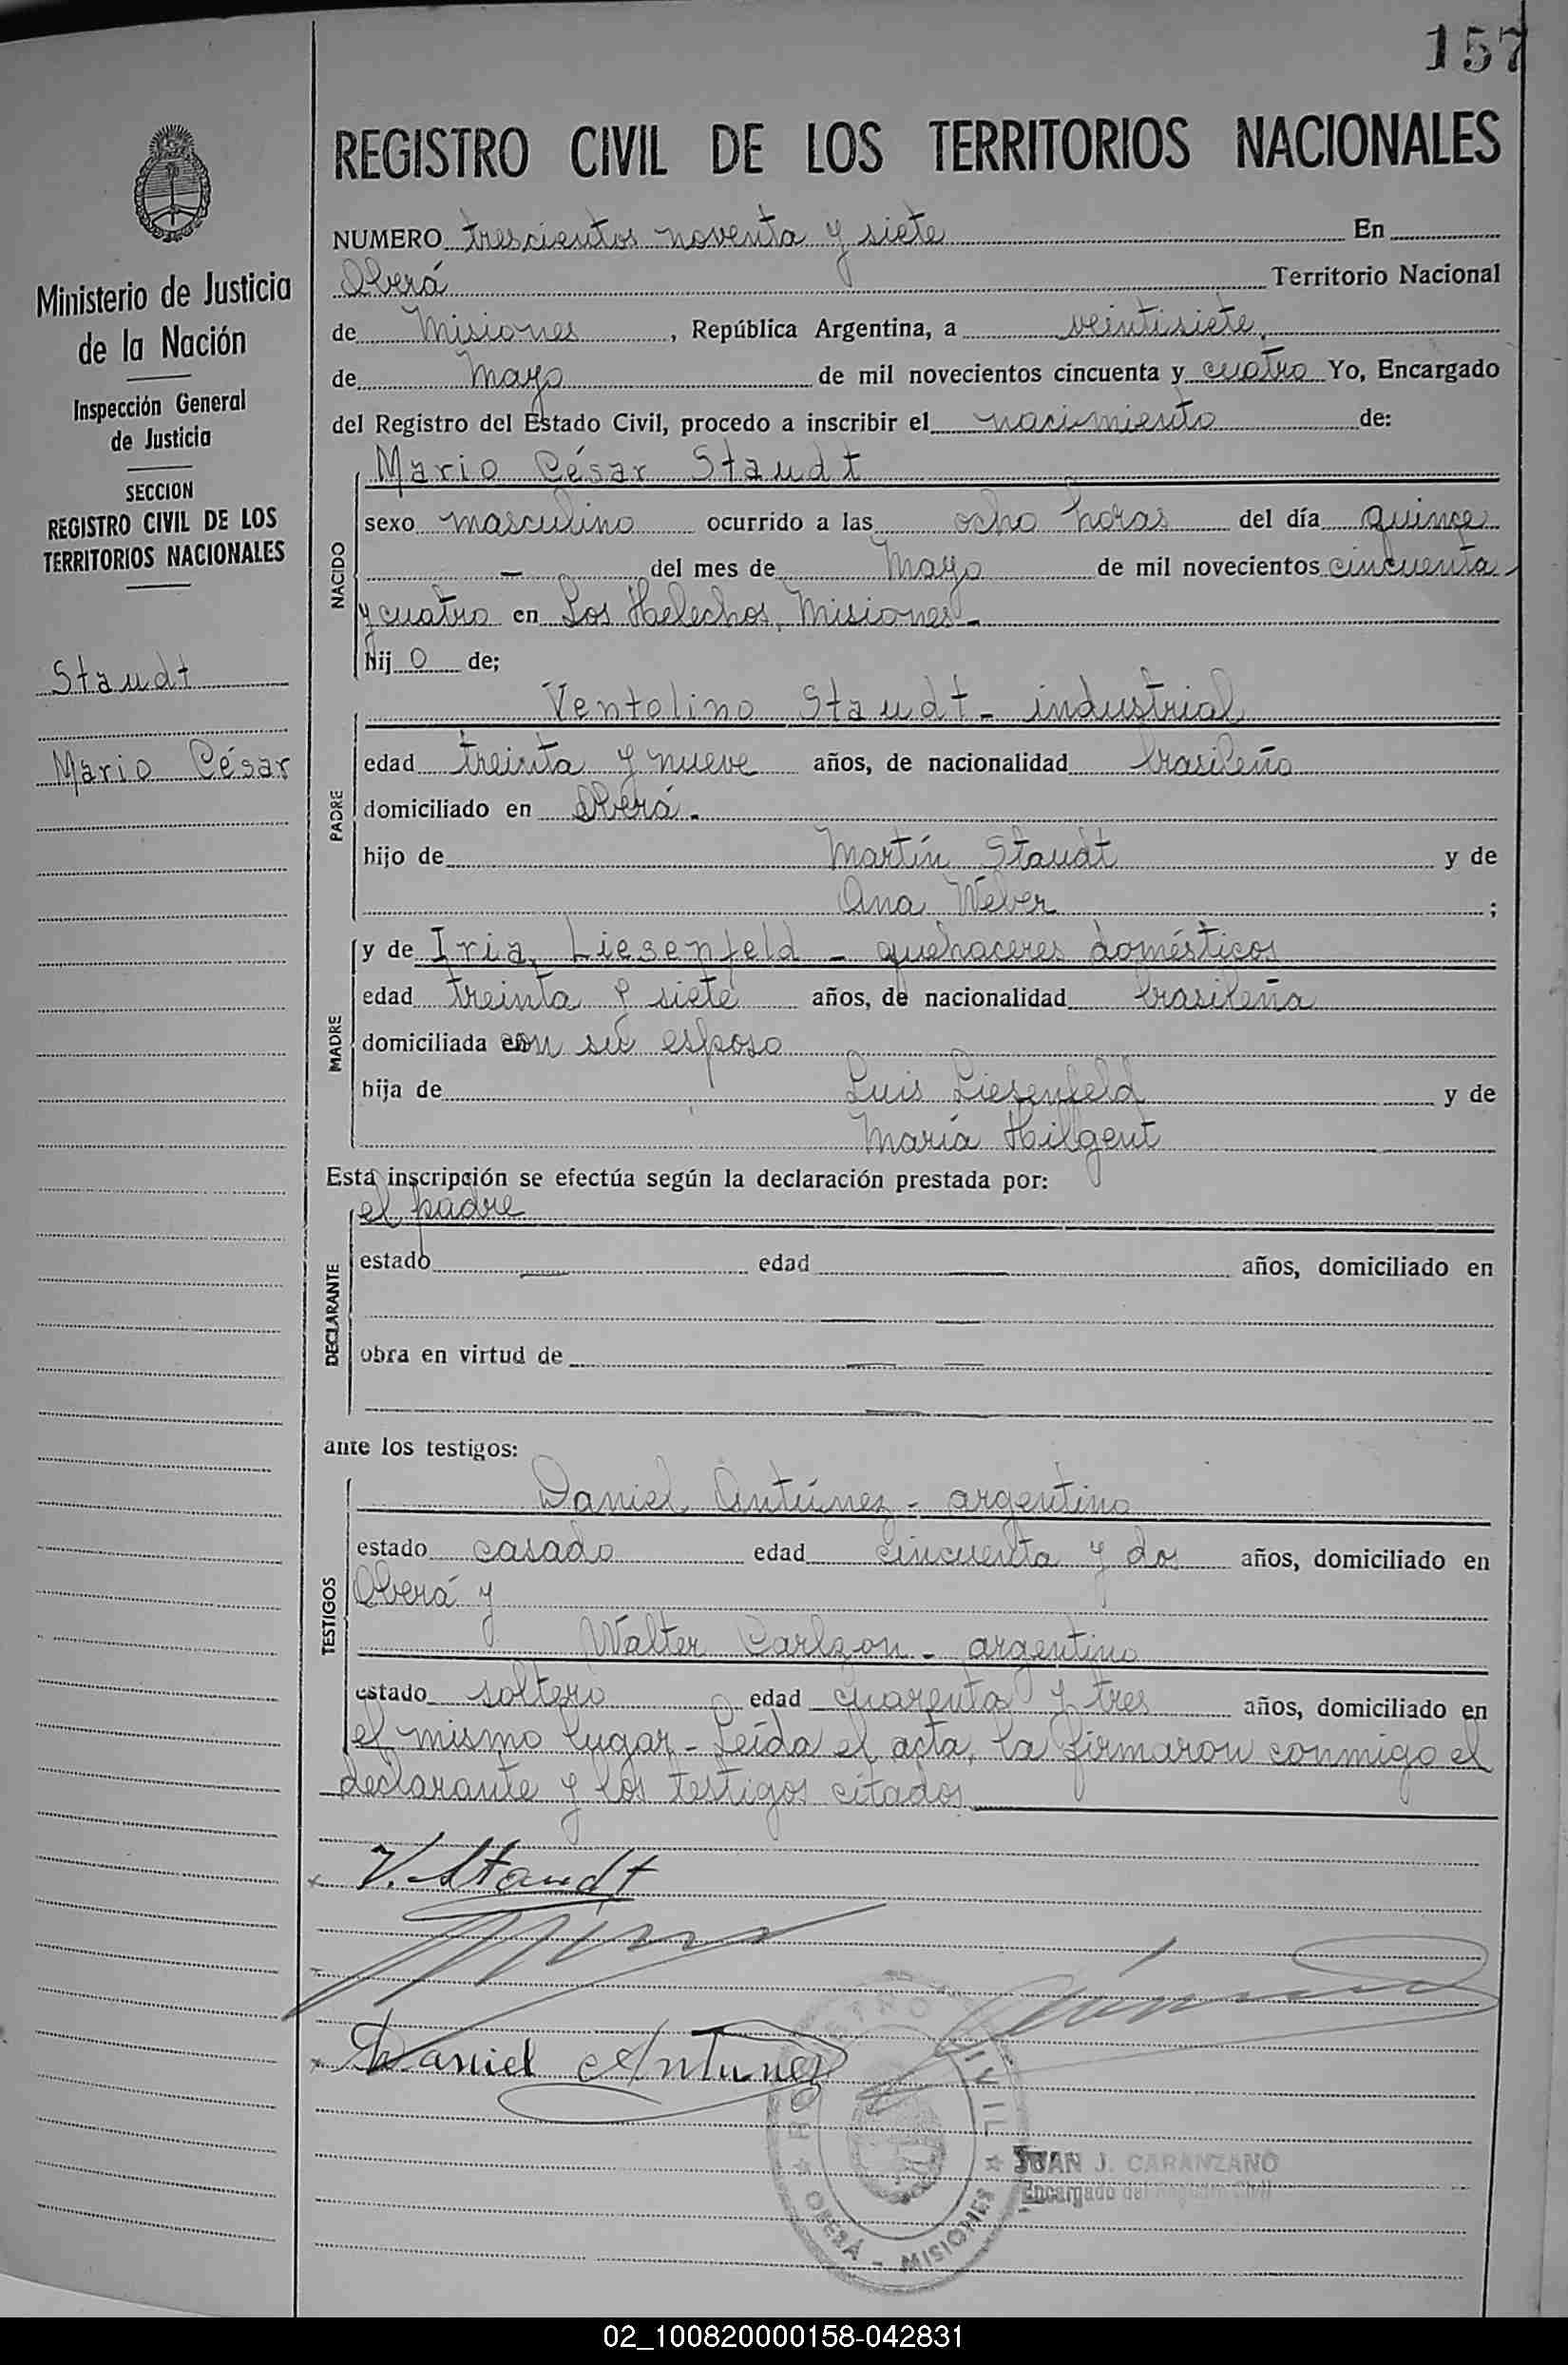 157
REGISTRO CIVIL DE LOS TERRITORIOS NACIONALES
Ministerio de Justicia
de la Nación
Inspección General
de Justicia
SECCION
REGISTRO CIVIL DE LOS
TERRITORIOS NACIONALES
Staudt
Mario César
NUMERO trescientos noventa y siete En
Oberá Territorio Nacional
de Misiones, República Argentina, a veintisiete
de Mayo de mil novecientos cincuenta y cuatro Yo, Encargado
del Registro del Estado Civil, procedo a inscribir el nacimiento de:
NACIDO
Mario César Staudt
sexo masculino ocurrido a las ocho horas del día quince
— del mes de Mayo de mil novecientos cincuenta
y cuatro en Los Helechos, Misiones -
hij o de;
PADRE
Ventolino Staudt - industrial
edad treinta y nueve años, de nacionalidad brasileño
domiciliado en Oberá -
hijo de Martín Staudt y de
Ana Weber ;
MADRE
y de Iria Liesenfeld - quehaceres domésticos
edad treinta y siete años, de nacionalidad brasileña
domiciliada con su esposo
hija de Luis Liesenfeld y de
María Hilgent
Esta inscripción se efectúa según la declaración prestada por:
DECLARANTE
el padre
estado — edad — años, domiciliado en
— —
obra en virtud de — —
—
ante los testigos:
TESTIGOS
Daniel Antúnez - argentino
estado casado edad cincuenta y dos años, domiciliado en
Oberá y
Walter Carlzon - argentino
estado soltero edad cuarenta y tres años, domiciliado en
el mismo lugar - Leída el acta, la firmaron conmigo el
declarante y los testigos citados
V. Staudt
Daniel Antunez
REGISTRO CIVIL
OBERÁ - MISIONES
JUAN J. CARANZANO
Encargado del Registro Civil
02_100820000158-042831